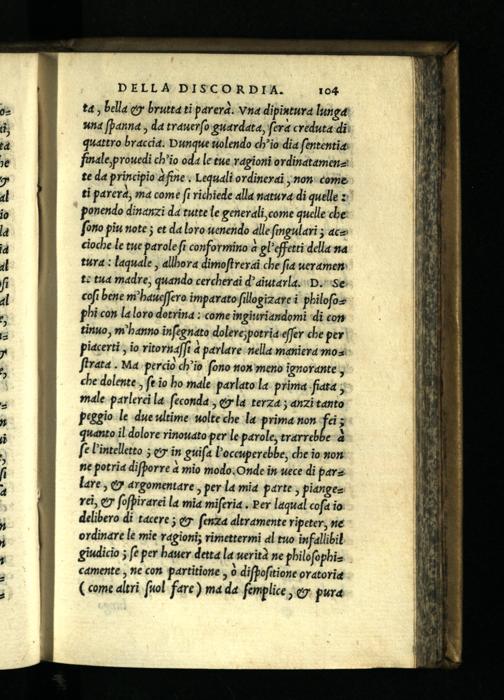 DELLA DISCORDIA. 104
ta, bella & brutta ti parerà. Vna dipintura lunga
una spanna, da trauerso guardata, serà creduta di
quattro braccia. Dunque uolendo ch'io dia sententia
finale, prouedi ch'io oda le tue ragioni ordinatamen=
te da principio à fine. Lequali ordinerai, non come
ti parerà, ma come si richiede alla natura di quelle:
ponendo dinanzi da tutte le generali, come quelle che
sono piu note; et da loro uenendo alle singulari; ac=
cioche le tue parole si conformino à gl'effetti della na
tura: laquale, allhora dimostrerai che sia ueramen
te tua madre, quando cercherai d'aiutarla. D. Se
cosi bene m'hauessero imparato sillogizare i philoso=
phi con la loro dotrina: come ingiuriandomi di con
tinuo, m'hanno insegnato dolere; potria esser che per
piacerti, io ritornassi à parlare nella maniera mo=
strata. Ma perciò ch'io sono non meno ignorante,
che dolente, se io ho male parlato la prima fiata,
male parlerei la seconda, & la terza; anzi tanto
peggio le due ultime uolte che la prima non fei;
quanto il dolore rinouato per le parole, trarrebbe à
se l'intelletto; & in guisa l'occuperebbe, che io non
ne potria disporre à mio modo. Onde in uece di par=
lare, & argomentare, per la mia parte, piange=
rei, & sospirarei la mia miseria. Per laqual cosa io
delibero di tacere; & senza altramente ripeter, ne
ordinare le mie ragioni; rimettermi al tuo infallibil
giudicio; se per hauer detta la uerità ne philosophi=
camente, ne con partitione, ò dispositione oratoria
(come altri suol fare) ma da semplice, & pura